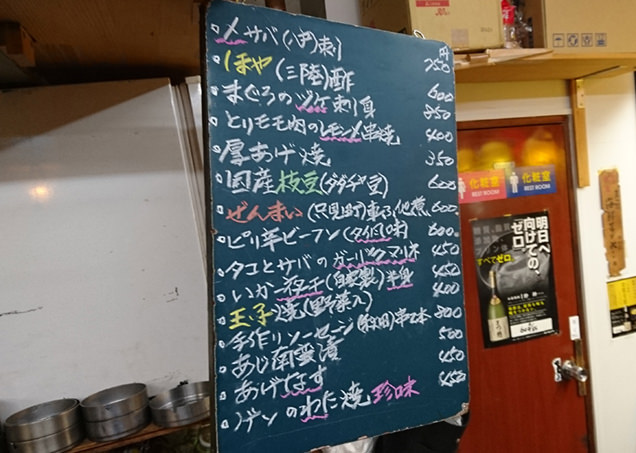 メサバ(八戸)刺
ほや(三陸)酢 750円
まぐろのヅケ刺身 600
とりモモ肉のレモン〆串焼 850
厚あげ焼 400
国産枝豆(ダダチャ豆) 350
ぜんまい(只見町) 600
ピリ辛ビーフン(タイ風味) 600
タコとサバのガーリックマリネ 600
いか一夜干(自家製)半身 450
玉子焼(野菜入) 450
手作りソーセージ 串2本 400
あじ南蛮漬 300
あげなす 500
のわた焼 珍味 450
450
化粧室
REST ROOM
化粧室
REST ROOM
明日へ
向けての、
ゼロ。
すべてゼロ